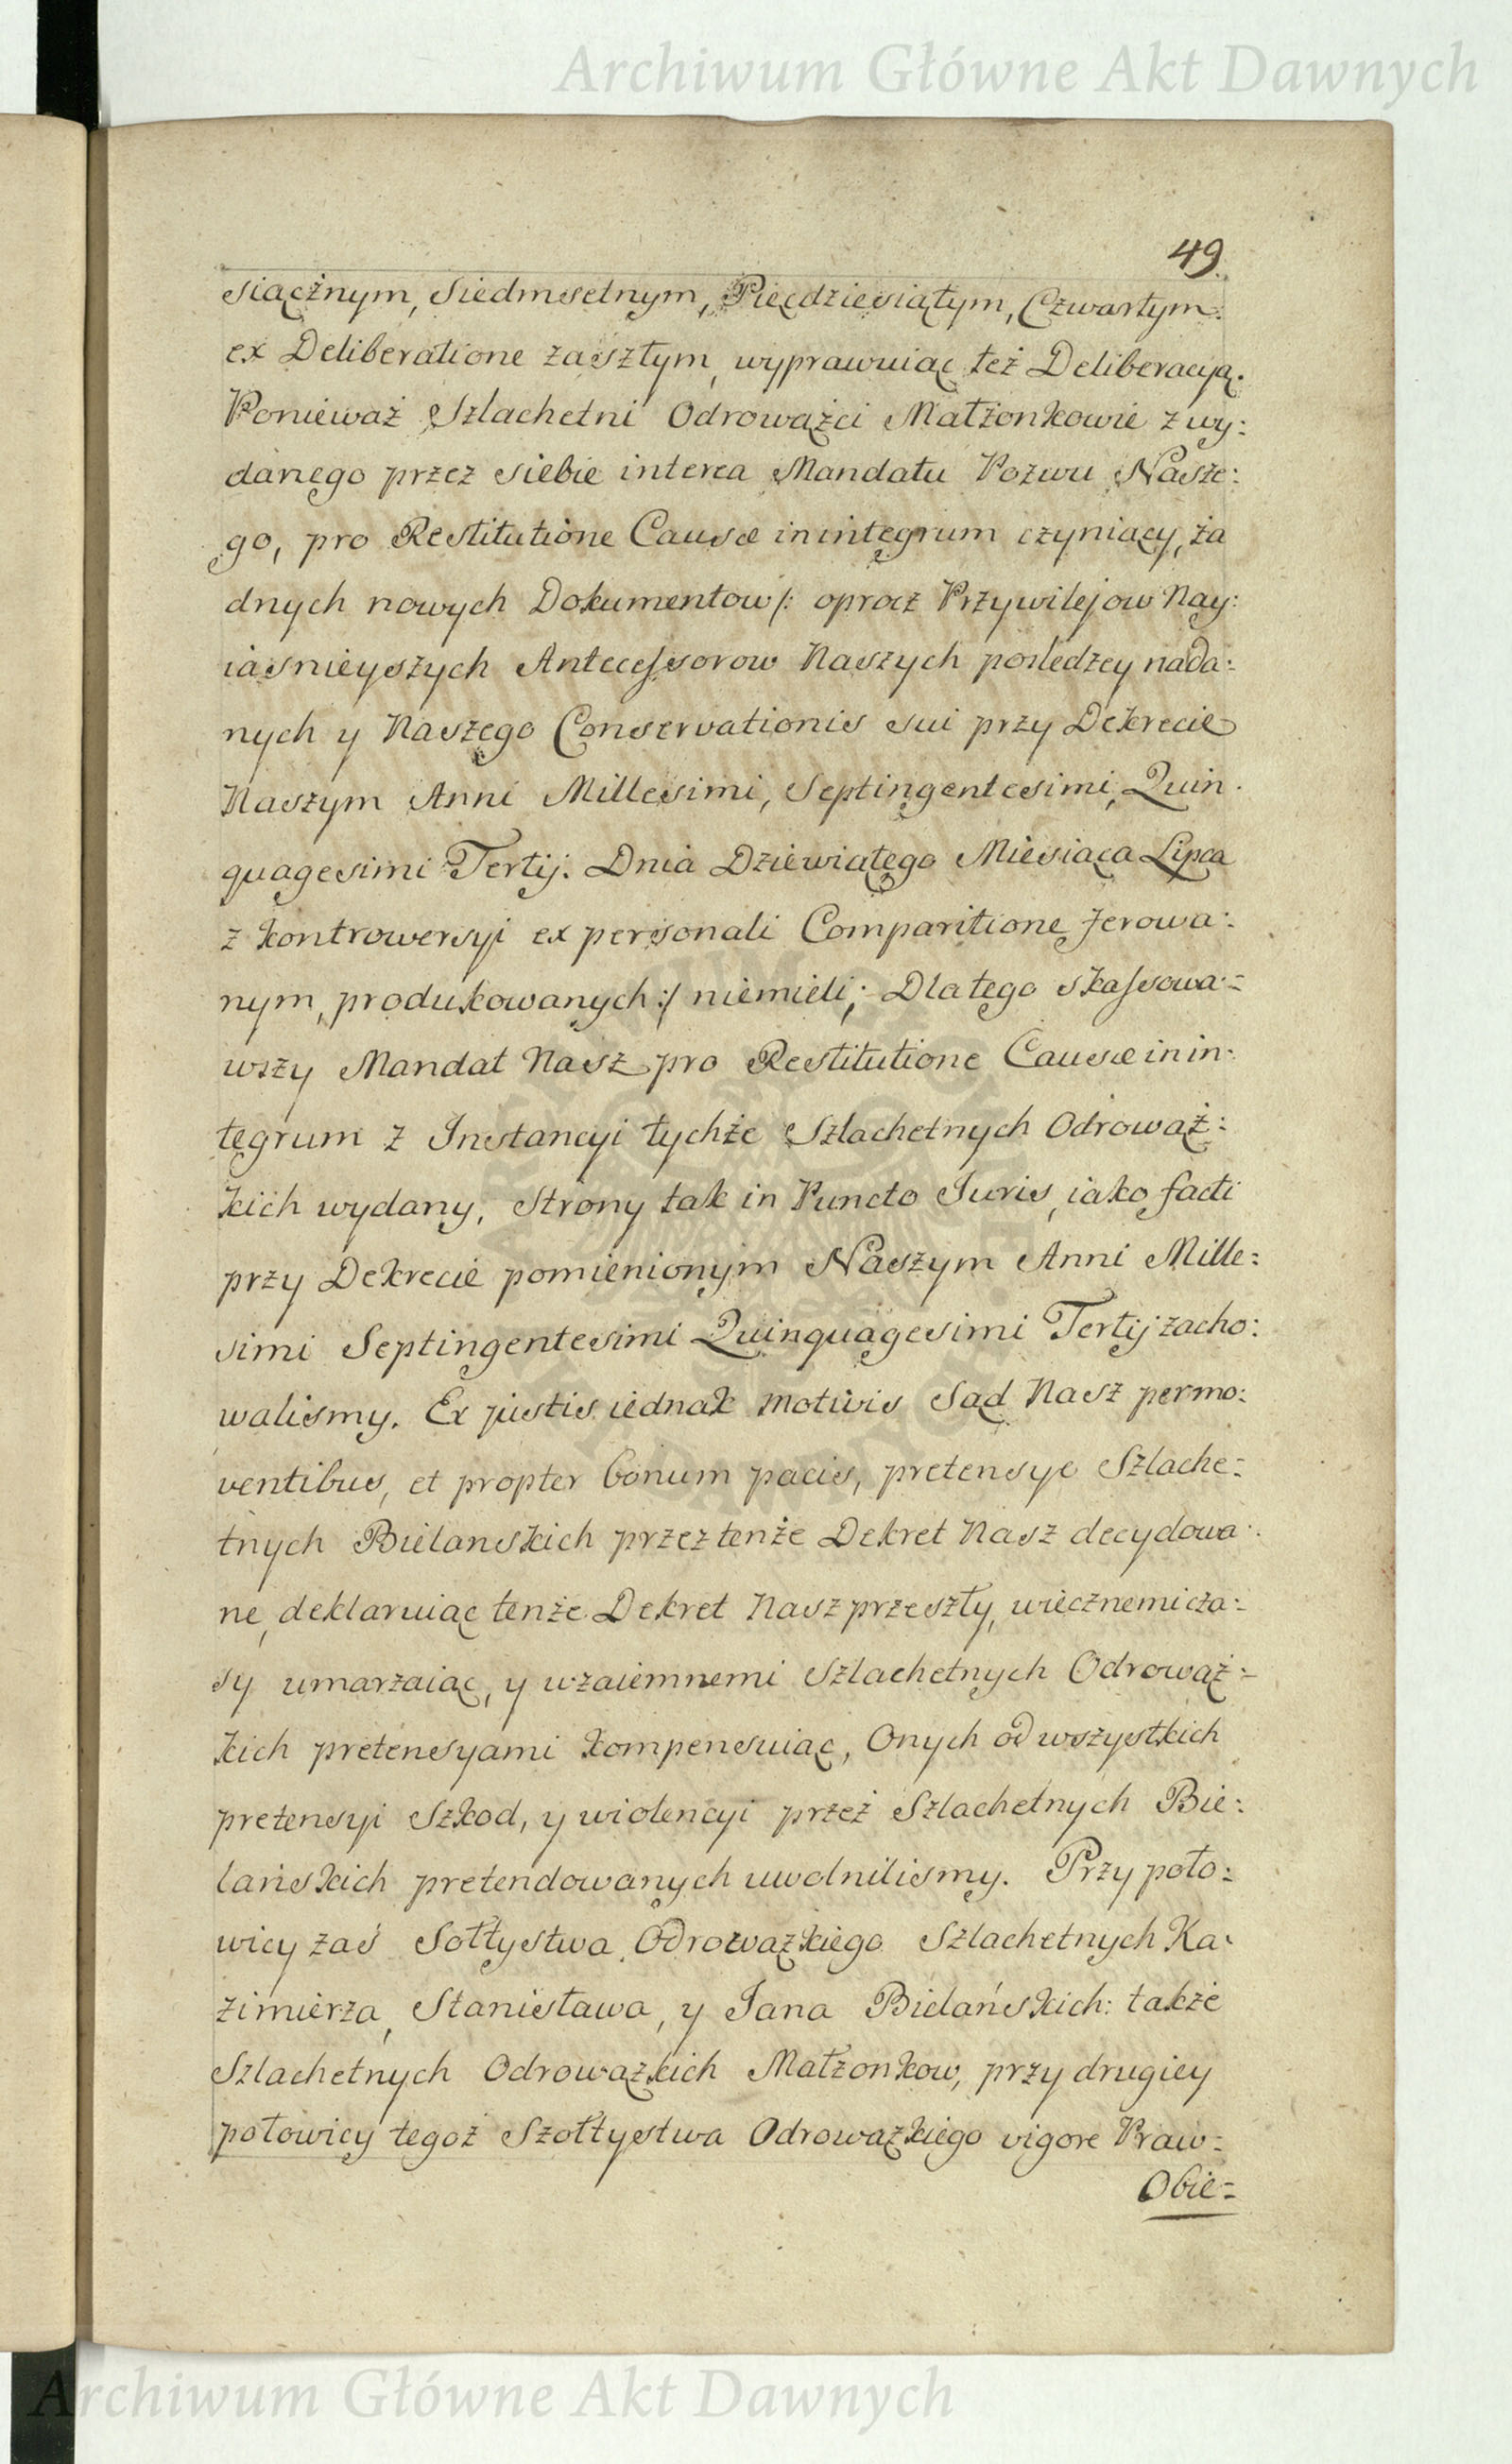 Archiwum Główne Akt Dawnych
49.
siącżnym, Siedmsetnym, Pięcdziesiątym, Czwartym.
ex Deliberatione zaszłym, wyprawuiąc też Deliberacyą.
Ponieważ Szlachetni Odrowążci Małżonkowie z wy:
danego przez siebie interea Mandatu Pozwu Nasze:
go, pro Restitutione Causæ in integrum czyniący, ża
dnych nowych Dokumentow /: oprocz Przywilejow Nay:
iasnieyszych Antecessorow Naszych posledzey nada:
nych y Naszego Conservationis sui przy Dekrecie
Naszym Anni Millesimi, Septingentesimi, Quin.
quagesimi Tertij. Dnia Dziewiątego Miesiąca Lipca
z kontrowersyi ex personali Comparitione ferowa:
nym, produkowanych :/ niemieli; Dlatego skassowa:
wszy Mandat Nasz pro Restitutione Causæ in in:
tegrum z Instancyi tychże Szlachetnych Odrowąż:
kich wydany, Strony tak in Puncto Juris, iako facti
przy Dekrecie pomienionym Naszym Anni Mille:
simi Septingentesimi Quinquagesimi Tertij zacho:
walismy. Ex justis iednak motivis Sąd Nasz permo:
ventibus, et propter bonum pacis, pretensye Szlache:
tnych Bielanskich przez tenże Dekret Nasz decydowa:
ne, deklaruiąc tenże Dekret Nasz przeszły, wiecznemi cza:
sy umarzaiąc, y wzaiemnemi Szlachetnych Odrowąż:
kich pretensyami kompensuiąc, Onych od wszystkich
pretensyi Szkod, y wiolencyi przez Szlachetnych Bie:
lańskich pretendowanych uwolnilismy. Przy poło:
wicy zaś Sołtystwa Odrowązkiego Szlachetnych Ka:
zimierza, Stanisława, y Jana Bielańskich: także
Szlachetnych Odrowązkich Małzonkow, przy drugiey
połowicy tegoż Szołtystwa Odrowązkiego vigore Praw:
Obie:
Archiwum Główne Akt Dawnych